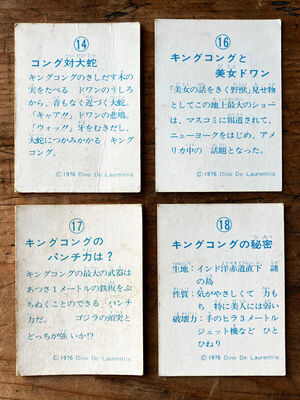 14
コング対大蛇
キングコングのさしだす木の
実をたべる　ドワンのうしろ
から、音もなく近づく大蛇。
「キャア!!」ドワンの悲鳴。
「ウォッ!!」牙をむきだし、
大蛇につかみかかる　キング
コング。
©1976 Dino De Laurentiis
16
キングコングと
美女ドワン
「美女の話をきく野獣」見せ物
としてこの地上最大のショー
は、マスコミに報道されて、
ニューヨークをはじめ、アメ
リカ中の　話題となった。
©1976 Dino De Laurentiis
17
キングコングの
パンチ力は？
キングコングの最大の武器は
あつさ1メートルの鉄板をぶ
ちぬくことのできる　パンチ
力だ。　ゴジラの頭突と
どっちが強いか!?
©1976 Dino De Laurentiis
18
キングコングの秘密
生地：インド洋赤道直下　謎
の島
性質：気がやさしくて　力も
ち　特に美人には弱い
破壊力：手のヒラ3メートル
ジェット機など　ひと
ひねり
©1976 Dino De Laurentiis